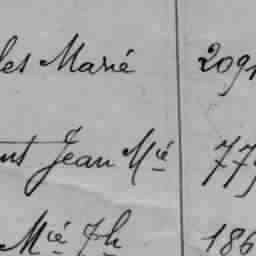 les Marié 209
nt Jean Mié 77
Mié Jh 186